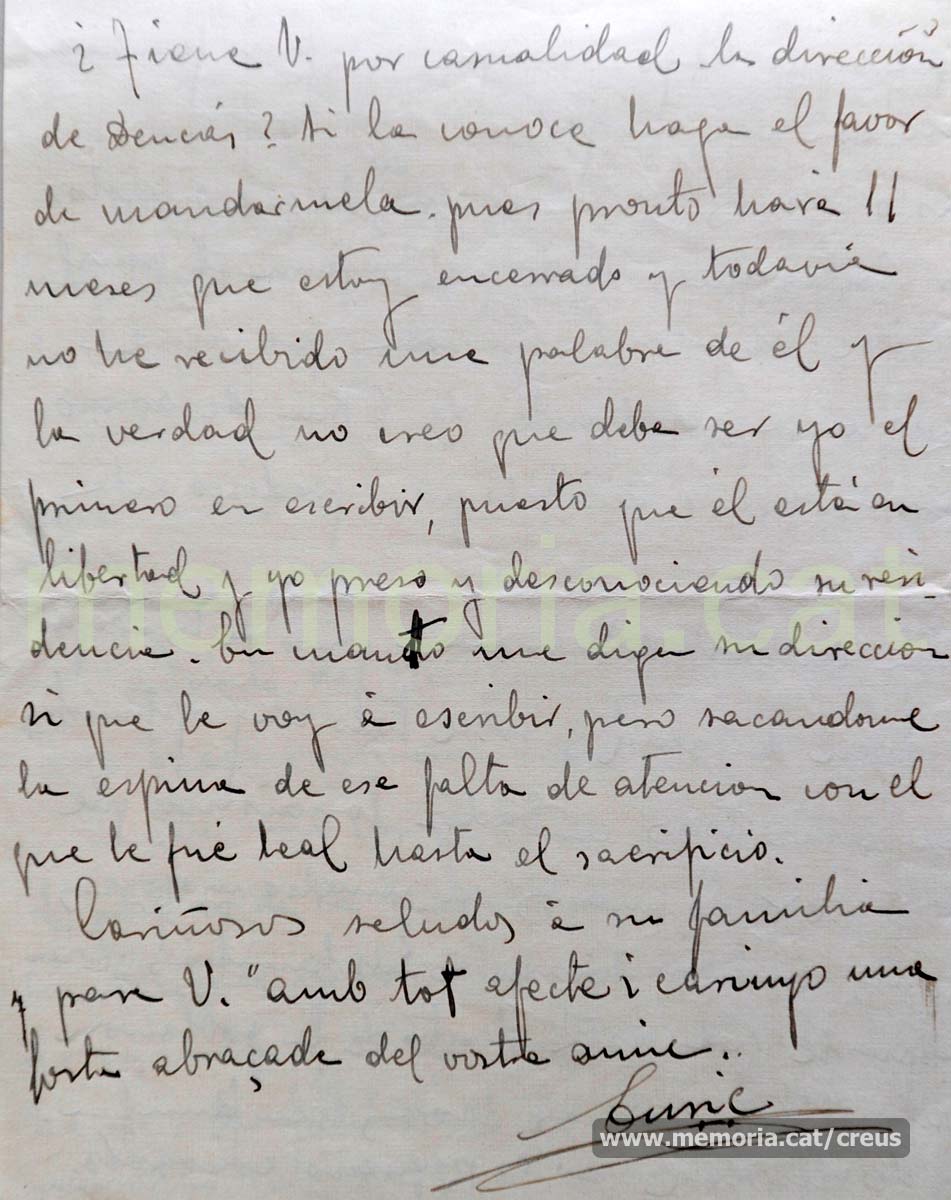 ¿Tiene V. por casualidad la dirección
de Dencás? Si la conoce haga el favor
de mandarmela. pues pronto hará 11
meses que estoy encerrado y todavia
no he recibido una palabra de él y
la verdad no creo que deba ser yo el
primero en escribir, puesto que él está en
libertad y yo preso y desconociendo su resi-
dencia. En cuanto me diga su direccion
si que le voy á escribir, pero sacandome
la espina de esa falta de atencion con el
que le fué leal hasta el sacrificio.
Cariñosos saludos á su familia
y para V. "amb tot afecte i carinyo una
forta abraçada del vostre amic..
memoria.cat
www.memoria.cat/creus